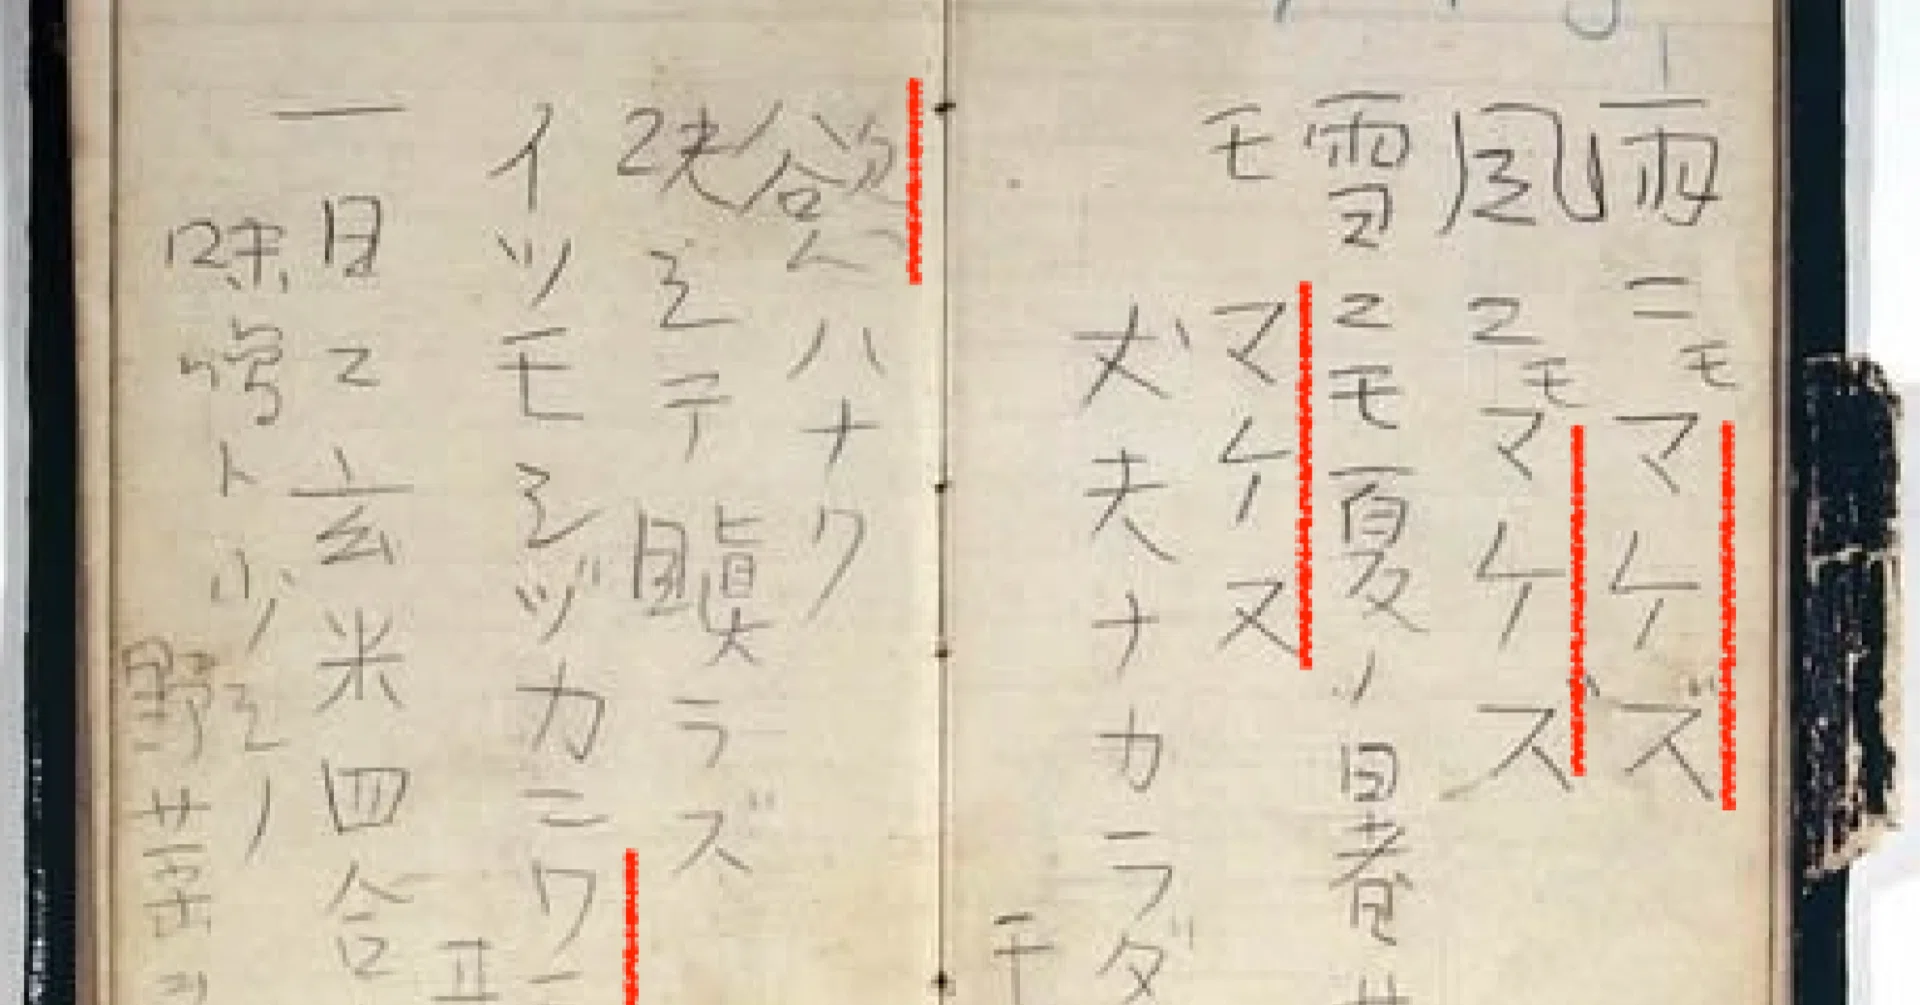 雨ニモマケズ
風ニモマケズ
雪ニモ夏ノ暑サ
モマケヌ
丈夫ナカラダ
慾ハナク
決シテ瞋ラズ
イツモシヅカニワ
一日ニ玄米四合
味噌ト少シノ
野菜